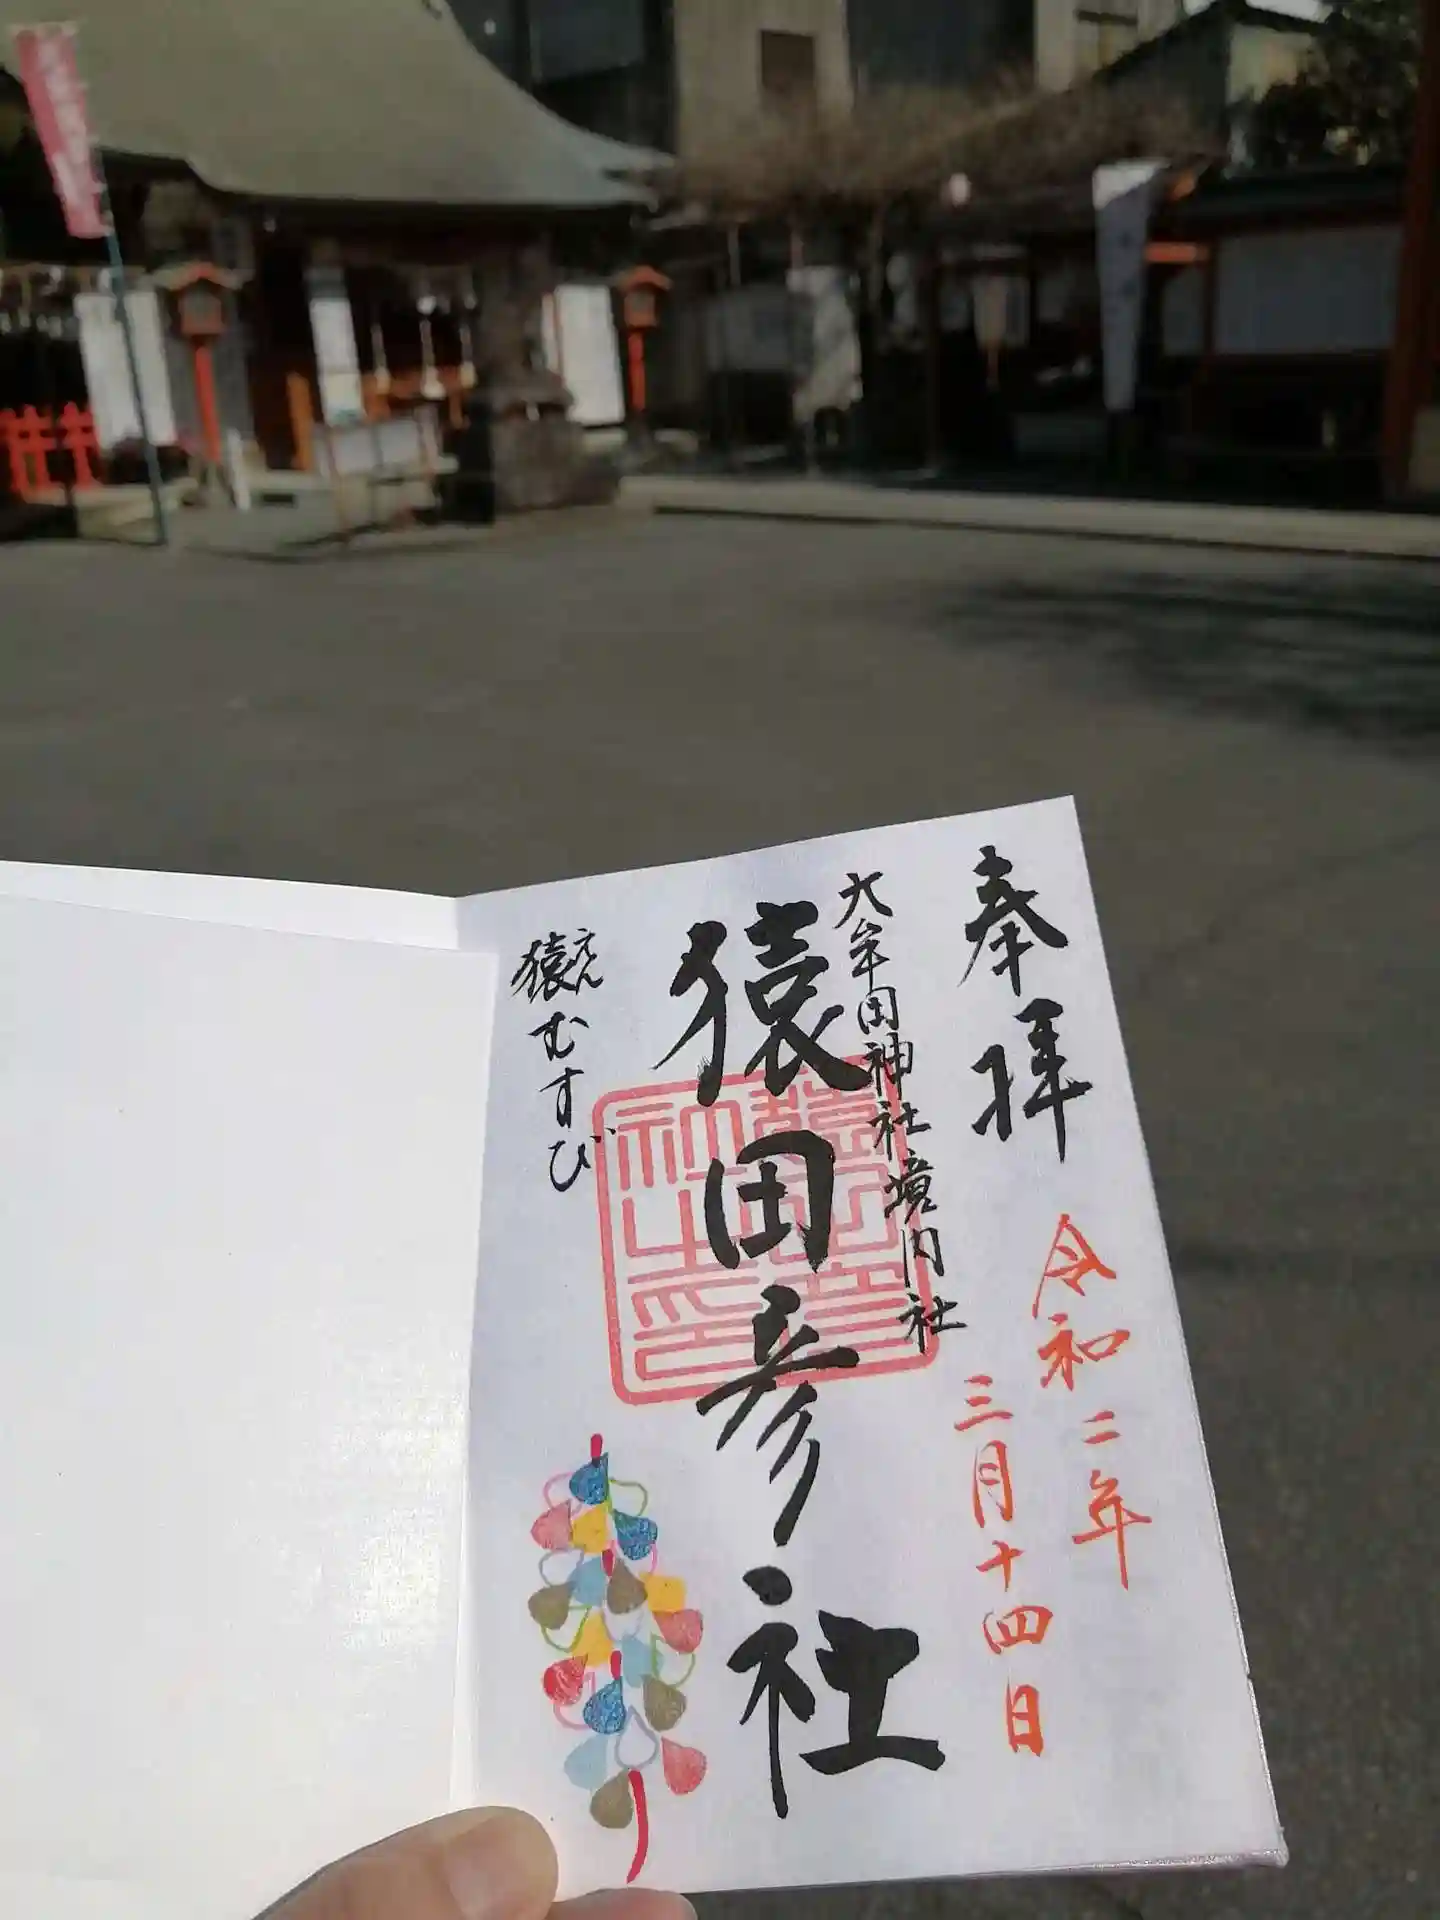 奉拝
令和二年
三月十四日
大牟田神社境内社
猿田彦社
猿むすび
えん